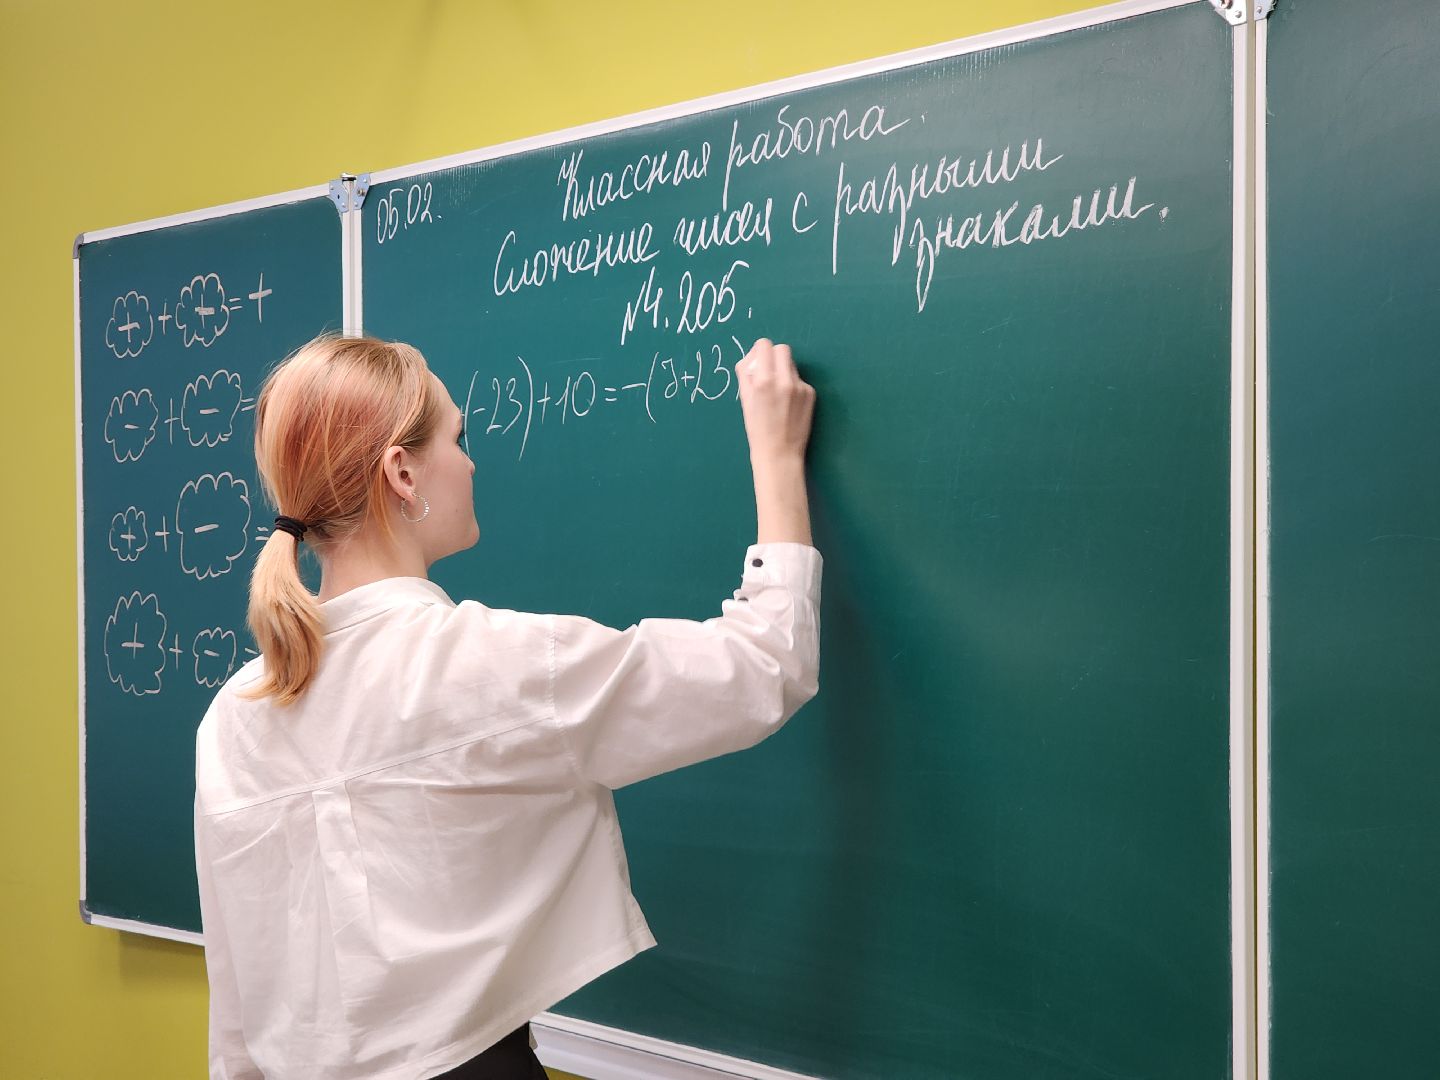 + + + = +
- + - =
+ + - =
+ + - =
05.02.
Классная работа.
Сложение чисел с разными
знаками.
№4.205.
(-23)+10=-(7+23)